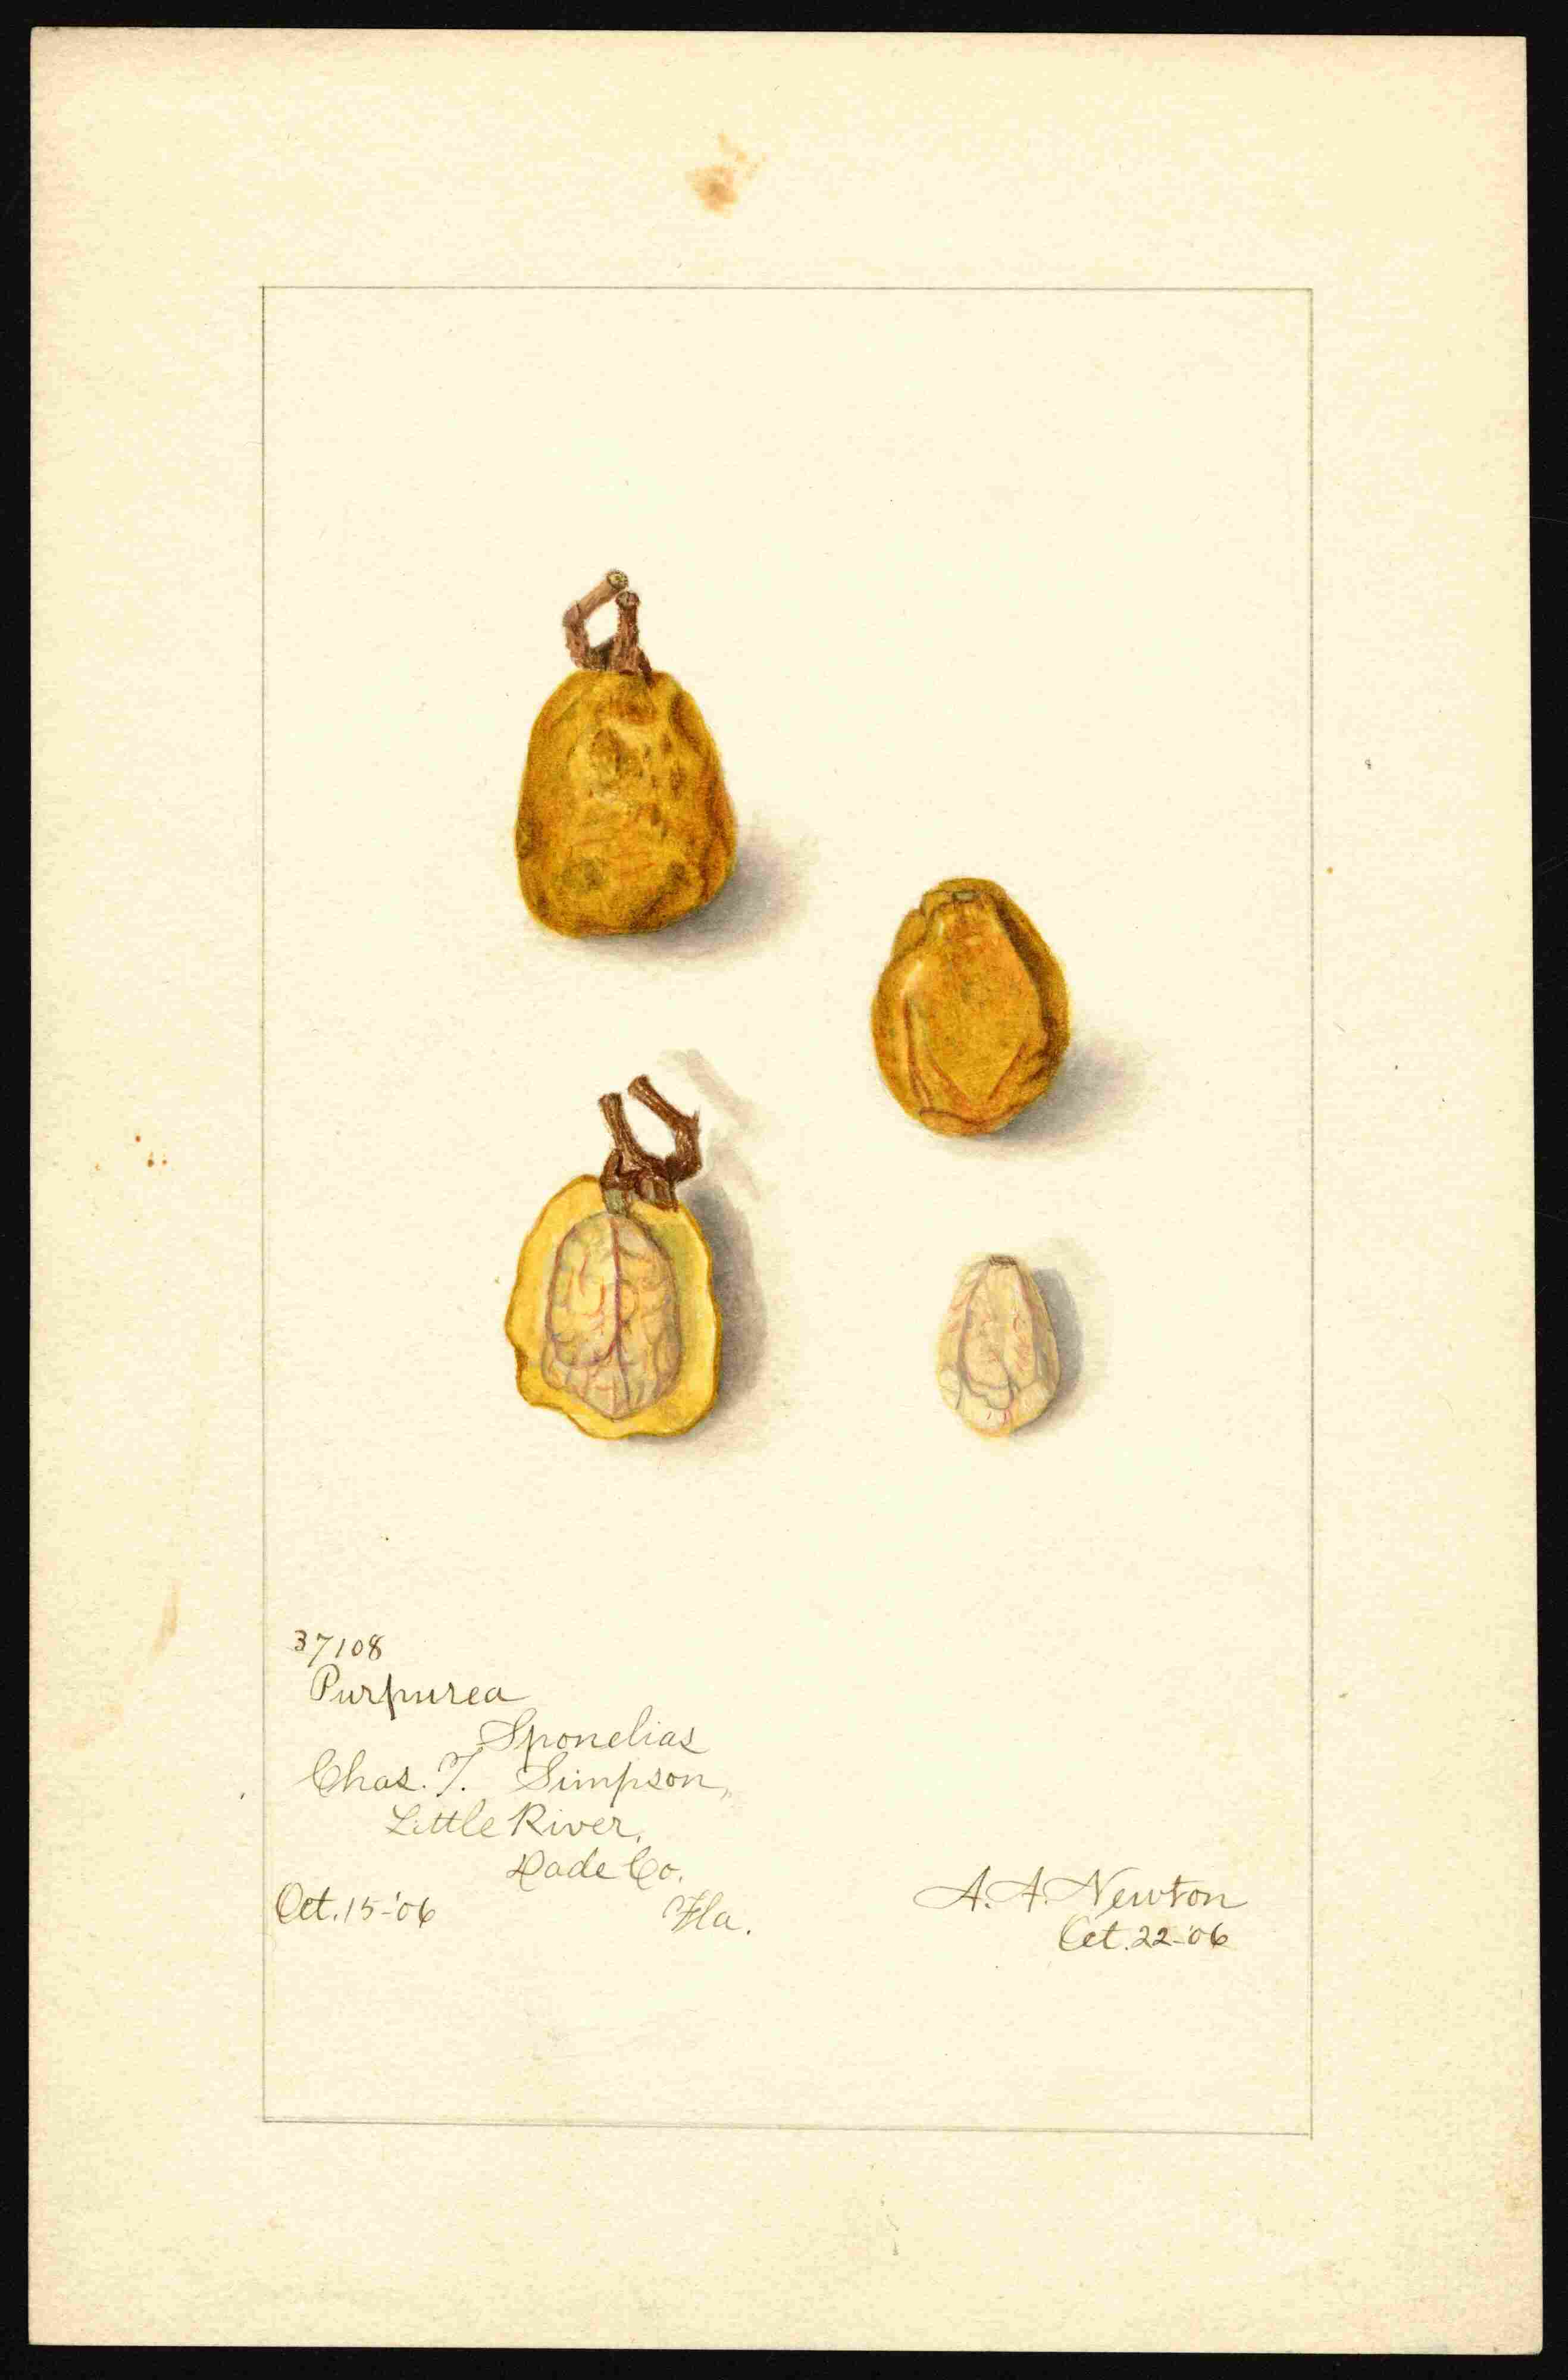 37108
Purpurea
Sponelias
Chas. T. Simpson,
Little River,
Dade Co.
Oct. 15-'06 Fla.
A. A. Newton
Oct. 22-'06